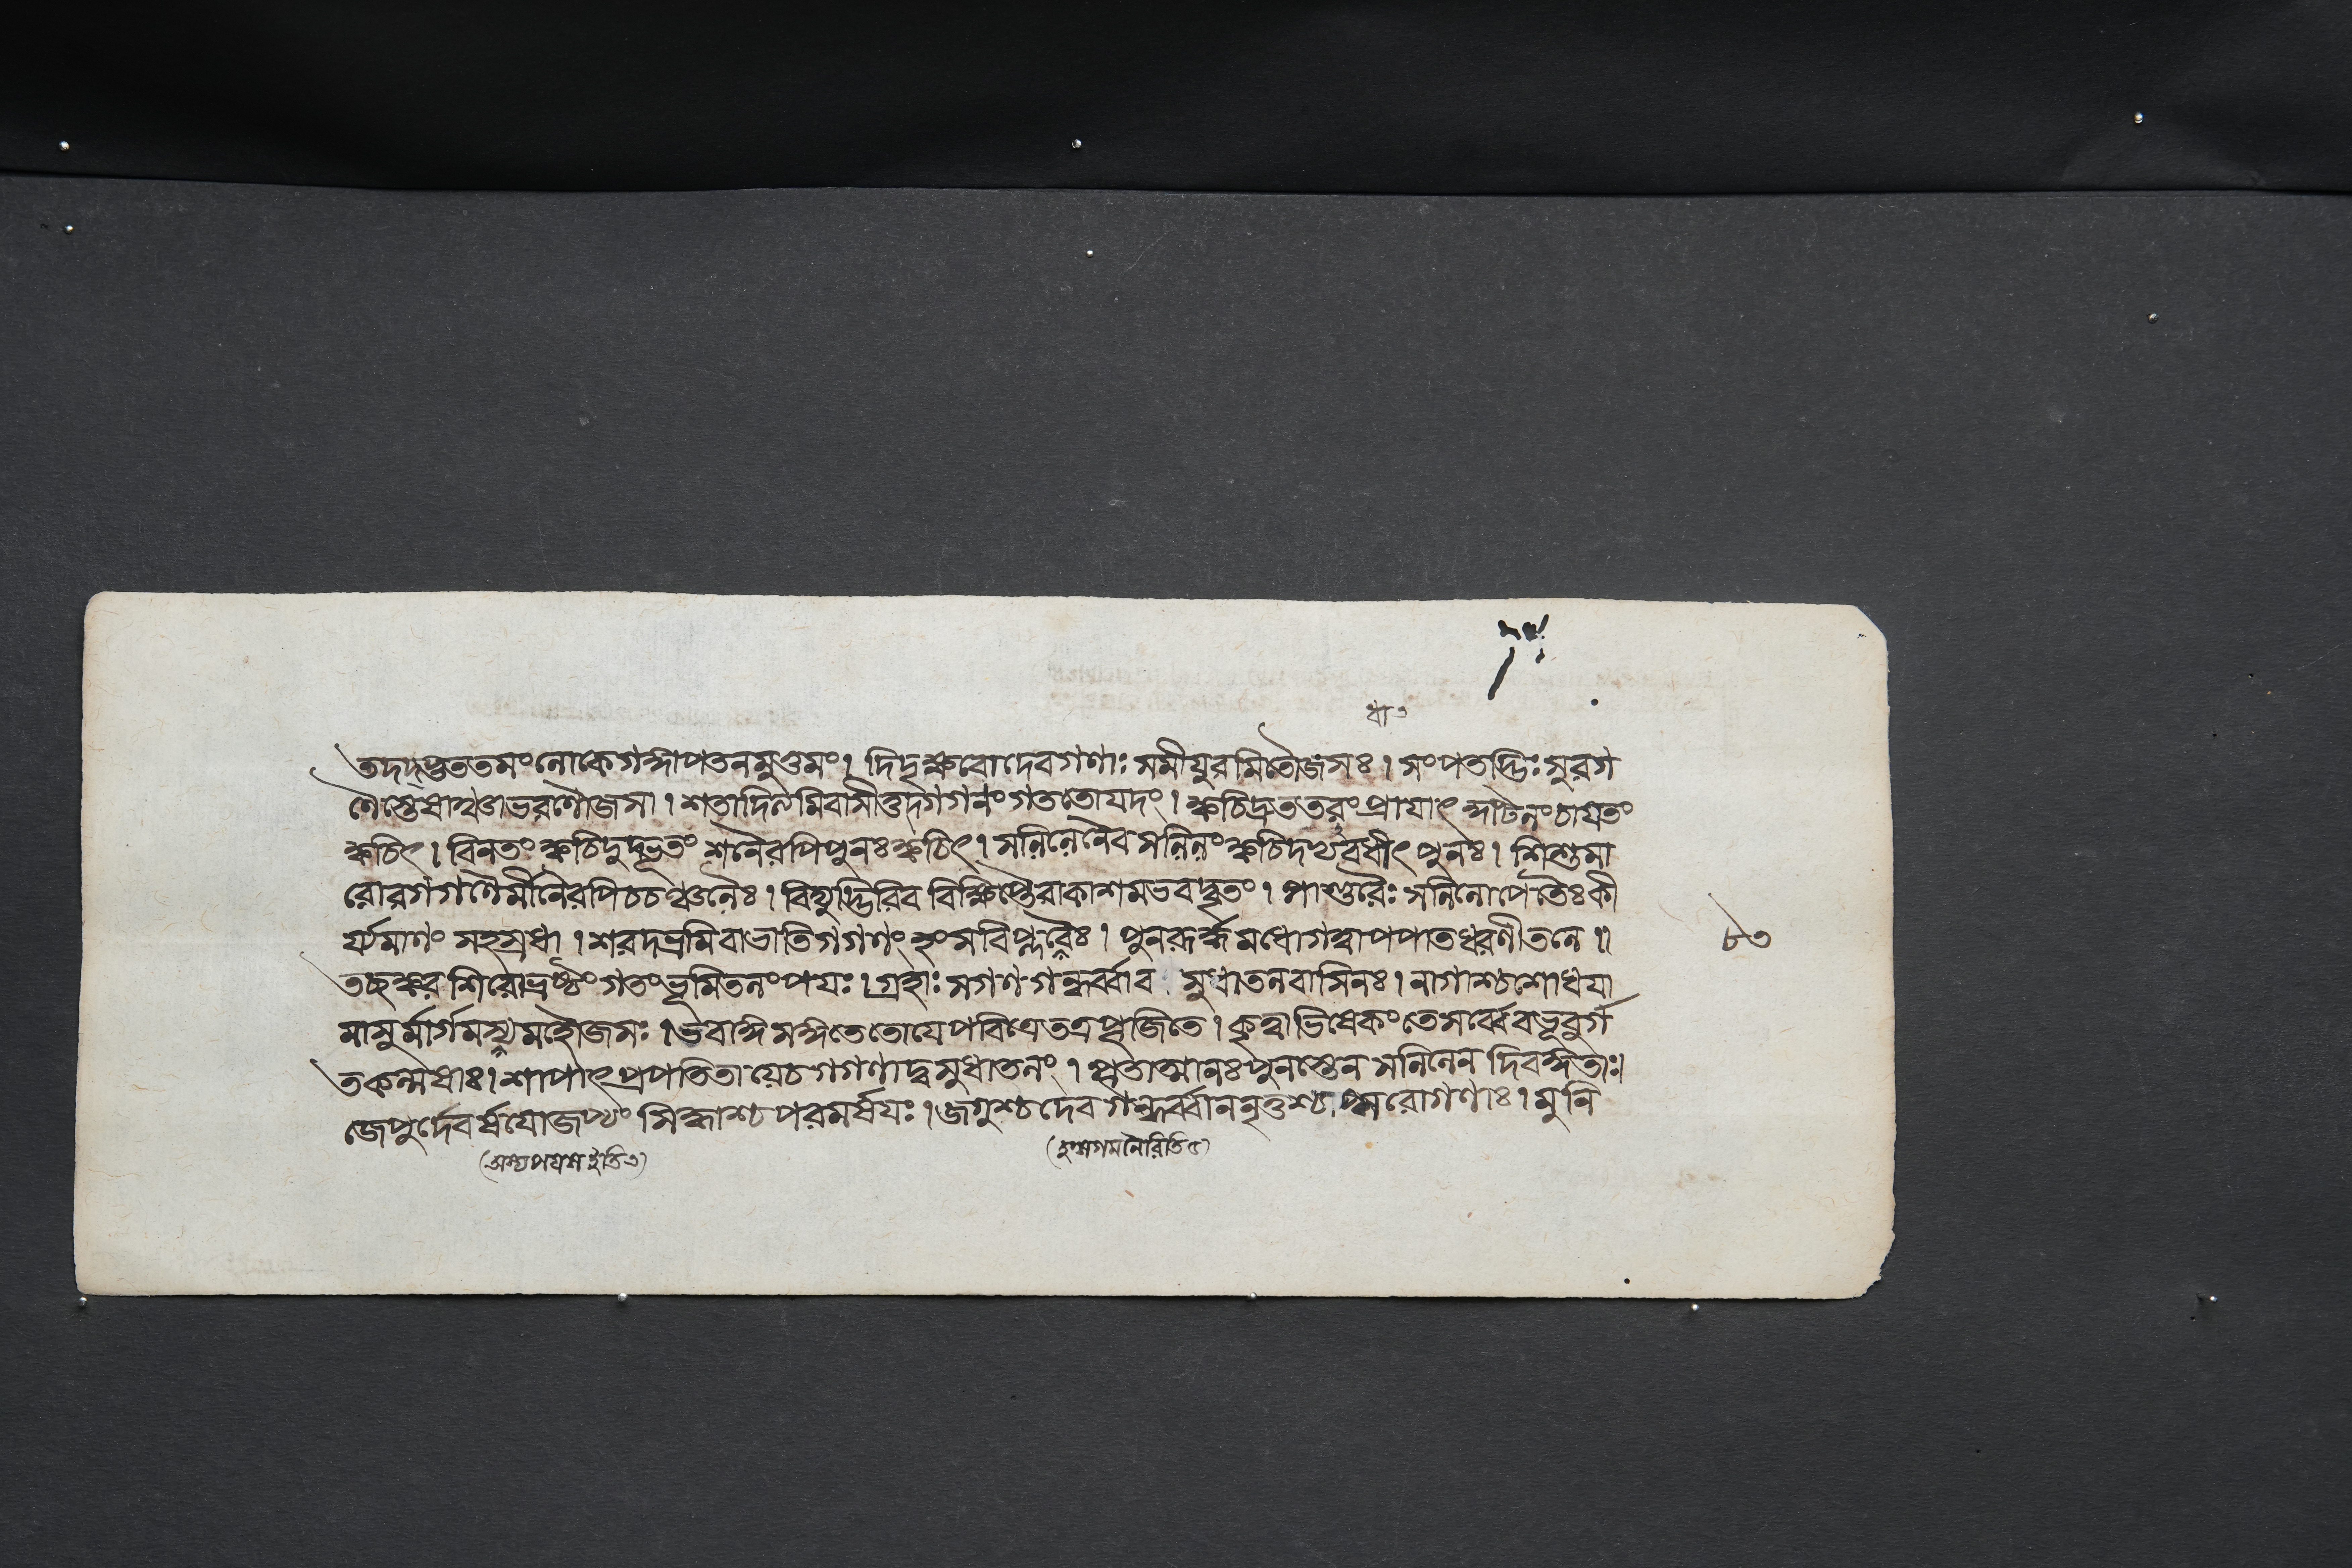 তদদ্ভুততমংলোকেগঙ্গাপতনমুত্তমং। দিদৃক্ষবোদেবগণাঃ সমীযুরমিতৌজসঃ। সংপতদ্ভিঃ সুরগ
ণৈস্তেষাঞ্চাভরণৌজসা। শতাদিত্যমিবাসীত্তদ্গগনং গততোযদং। ক্বচিদ্দ্রুততরং প্রাযাৎ চাযতং
ক্বচিৎ। বিনতং ক্বচিদুদ্ভূতং শনৈরপিপুনঃ ক্বচিৎ। সলিলেনৈব সলিলং ক্বচিদপ্যবধীৎ পুনঃ। শিশুমা
রোরগগণৈর্মীনৈরপিচচঞ্চলৈঃ। বিদ্যুদ্ভিরিব বিক্ষিপ্তৈরাকাশমভবদ্বৃতং। পাণ্ডুরৈঃ কী
র্য্যমাণং সহস্রধা। শরদভ্রমিবাভাতিগগণং হংসবিপ্লবৈঃ। পুনরূর্দ্ধ্বমধোগত্বাপপাতধরণীতলে॥
৮৩
তচ্ছঙ্করশিরোভ্রষ্টং গতং ভূমিতলং পযঃ। গ্রহাঃ সগণগন্ধর্ব্বাব সুধাতলবাসিনঃ। নাগাশ্চশোধযা
মাসুর্মার্গমস্যমহৌজসঃ। ভবাঙ্গসঙ্গতেতোযেপবিত্রেতত্রপূজিতে। কৃত্বাভিষেকংতেসর্ব্বেবভূবুর্গ
তকল্মষাঃ। শাপাৎপ্রপতিতাযেচগগণাদ্বসুধাতলং। পূতাত্মানঃপুনস্তেনসলিলেনদিবঙ্গতাঃ।
জেপুর্দেবর্ষযোজপ্যং সিদ্ধাশ্চপরমর্ষযঃ। জগুশ্চদেবগন্ধর্ব্বাননৃতুশ্চাপ্সরোগণাঃ। মুনি